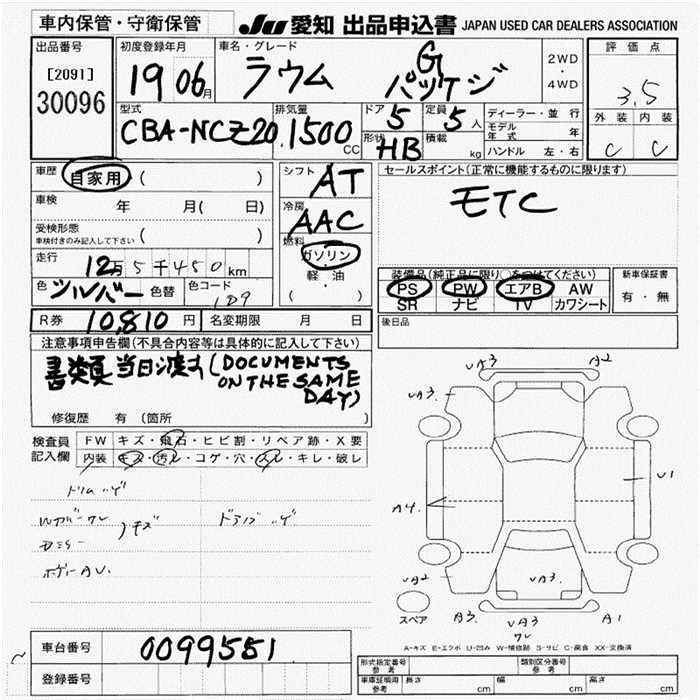 車内保管・守衛保管
JU 愛知 出品申込書 JAPAN USED CAR DEALERS ASSOCIATION
出品番号
[2091]
30096
初度登録年月
19 06 月
車名・グレード
ラウム G パッケジ
2WD
・
4WD
評価点
3.5
外装 内装
C C
型式
CBA-NCZ20
排気量
1500 CC
ドア 5
定員 5 人
形状 HB
積載 kg
ディーラー・並行
モデル年式 年
ハンドル 左・右
車歴 自家用 ( )
車検 年 月( 日)
受検形態
車検付きのみ記入して下さい ( )
走行 12万5千450km
色 シルバー 色替 色コード 1D9
シフト AT
冷房 AAC
燃料
ガソリン
軽・油
( )
セールスポイント(正常に機能するものに限ります)
ETC
装備品(純正品に限り○をつけてください)
PS PW エアB AW
SR ナビ TV カワシート
新車保証書
有・無
R券 10,810 円 名変期限 月 日
後日品
注意事項申告欄(不具合内容等は具体的に記入して下さい)
書類 当日渡す(DOCUMENTS
ON THE SAME
DAY)
修復歴 有 (箇所 )
検査員
記入欄
FW キズ・飛石・ヒビ割・リペア跡・X要
内装 キズ・汚レ・コゲ・穴・スレ・キレ・破レ
キズ
ボデー AU.
UA3. A2
UA3.
U1
A4.
UA2 UA3. UA2
スペア
A3. UA3 A1
ワレ
A-キズ E-エクボ U-凹み W-補修跡 S-サビ C-腐食 XX-交換済
車台番号 0099551
登録番号
形式指定番号 参考
類別区分番号 参考
車庫証明用 参考 長さ cm 幅 cm 高さ cm